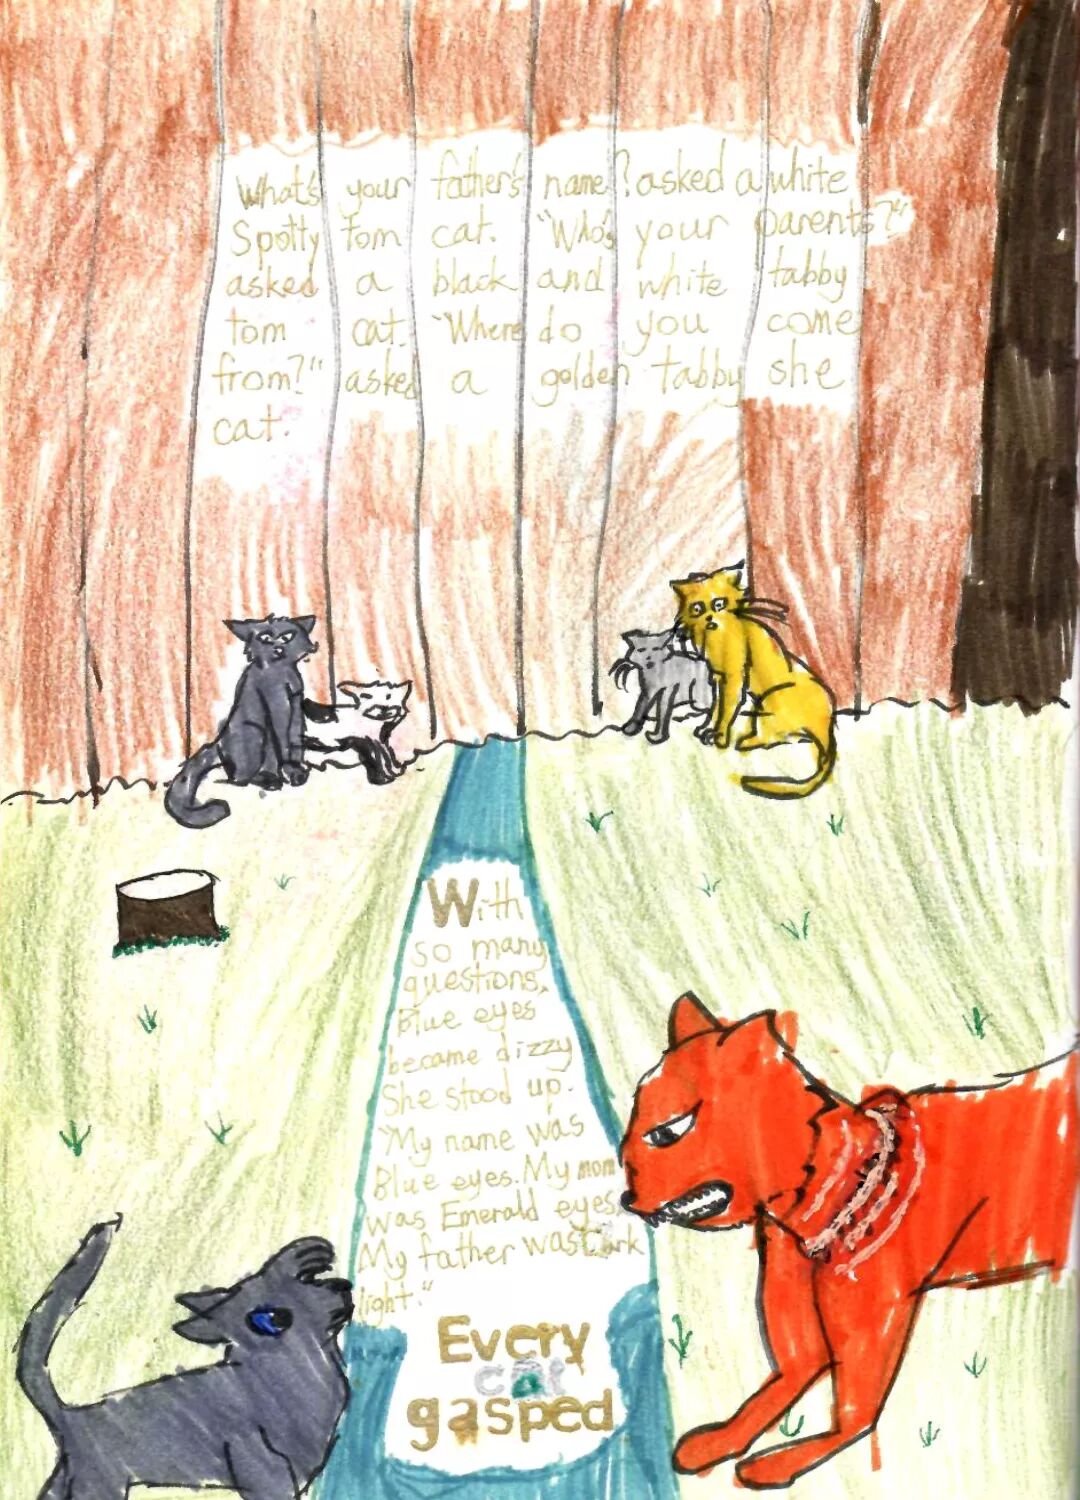 What's your father's name? asked a white
Spotty tom cat. "Who's your parents?"
asked a black and white tabby
tom cat. "Where do you come
from?" asked a golden tabby she
cat.
With
so many
questions,
Blue eyes
became dizzy
She stood up.
"My name was
Blue eyes. My mom
was Emerald eyes,
My father was
light."
Every
cat
gasped